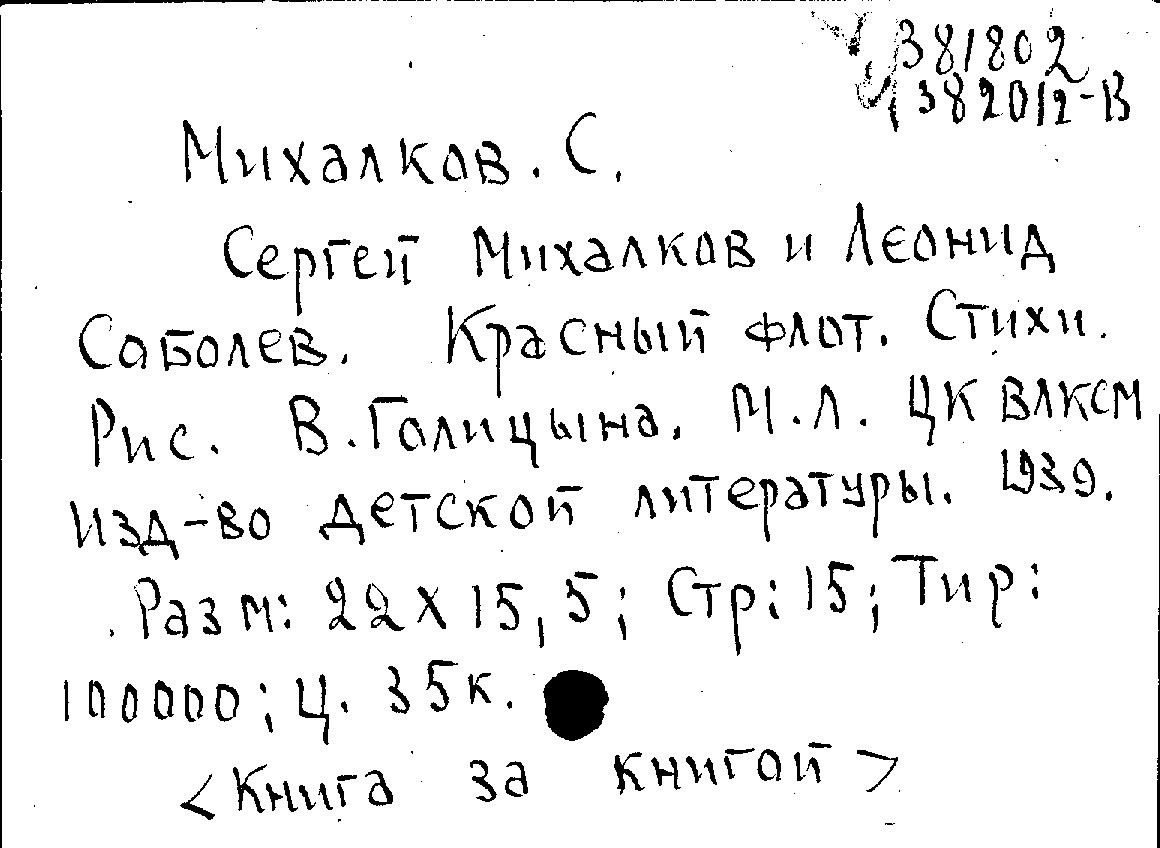 381802
382012-В
Михалков. С.
Сергей Михалков и Леонид
Соболев. Красный флот. Стихи.
Рис. В.Голицына. М.Л. ЦК ВЛКСМ
изд-во детской литературы. 1939.
Разм: 22х15,5; Стр: 15; Тир:
100000; Ц. 35к.
<Книга за книгой>